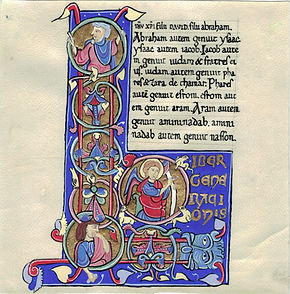 DAVID. filii abraham.
Abraham autem genuit ysaac
ysaac autem iacob. Iacob aute
m genuit iudam & fratres ei
us. iudam autem genuit pha
res & zara de thamar. Phares
autē genuit esrom. esrom aut
em genuit aram. Aram autem
genuit aminadab. amini
nadab autem genuit nason.
LIBER
GENE
RACI
ONIS